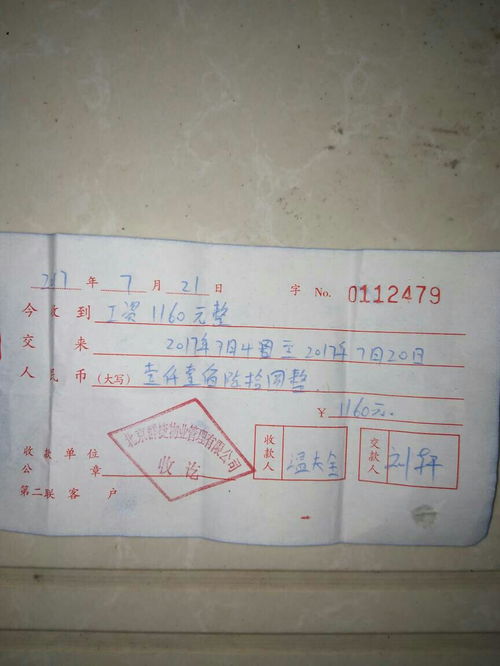 2017年7月21日 字 No. 0112479
今收到 工资1160元整
交来 2017年7月4日至2017年7月20日
人民币(大写) 壹仟壹佰陆拾圆整
￥1160元
北京群捷物业管理有限公司
收讫
收款单位
公章
收款人 温大全
交款人 刘轩
第二联客户